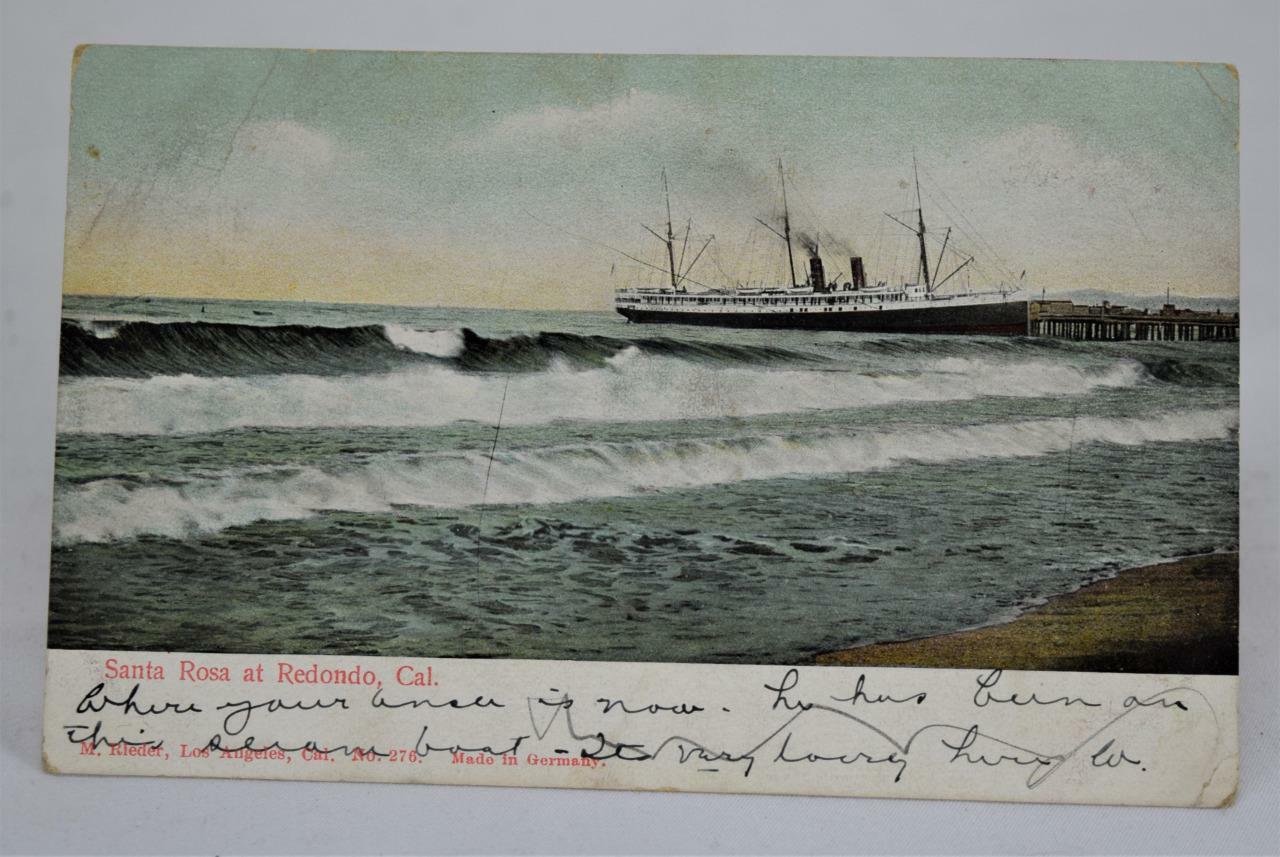 Santa Rosa at Redondo, Cal.
where your is now. he has been on
this boat - It very here
M. Rieder, Los Angeles, Cal. No. 276. Made in Germany.